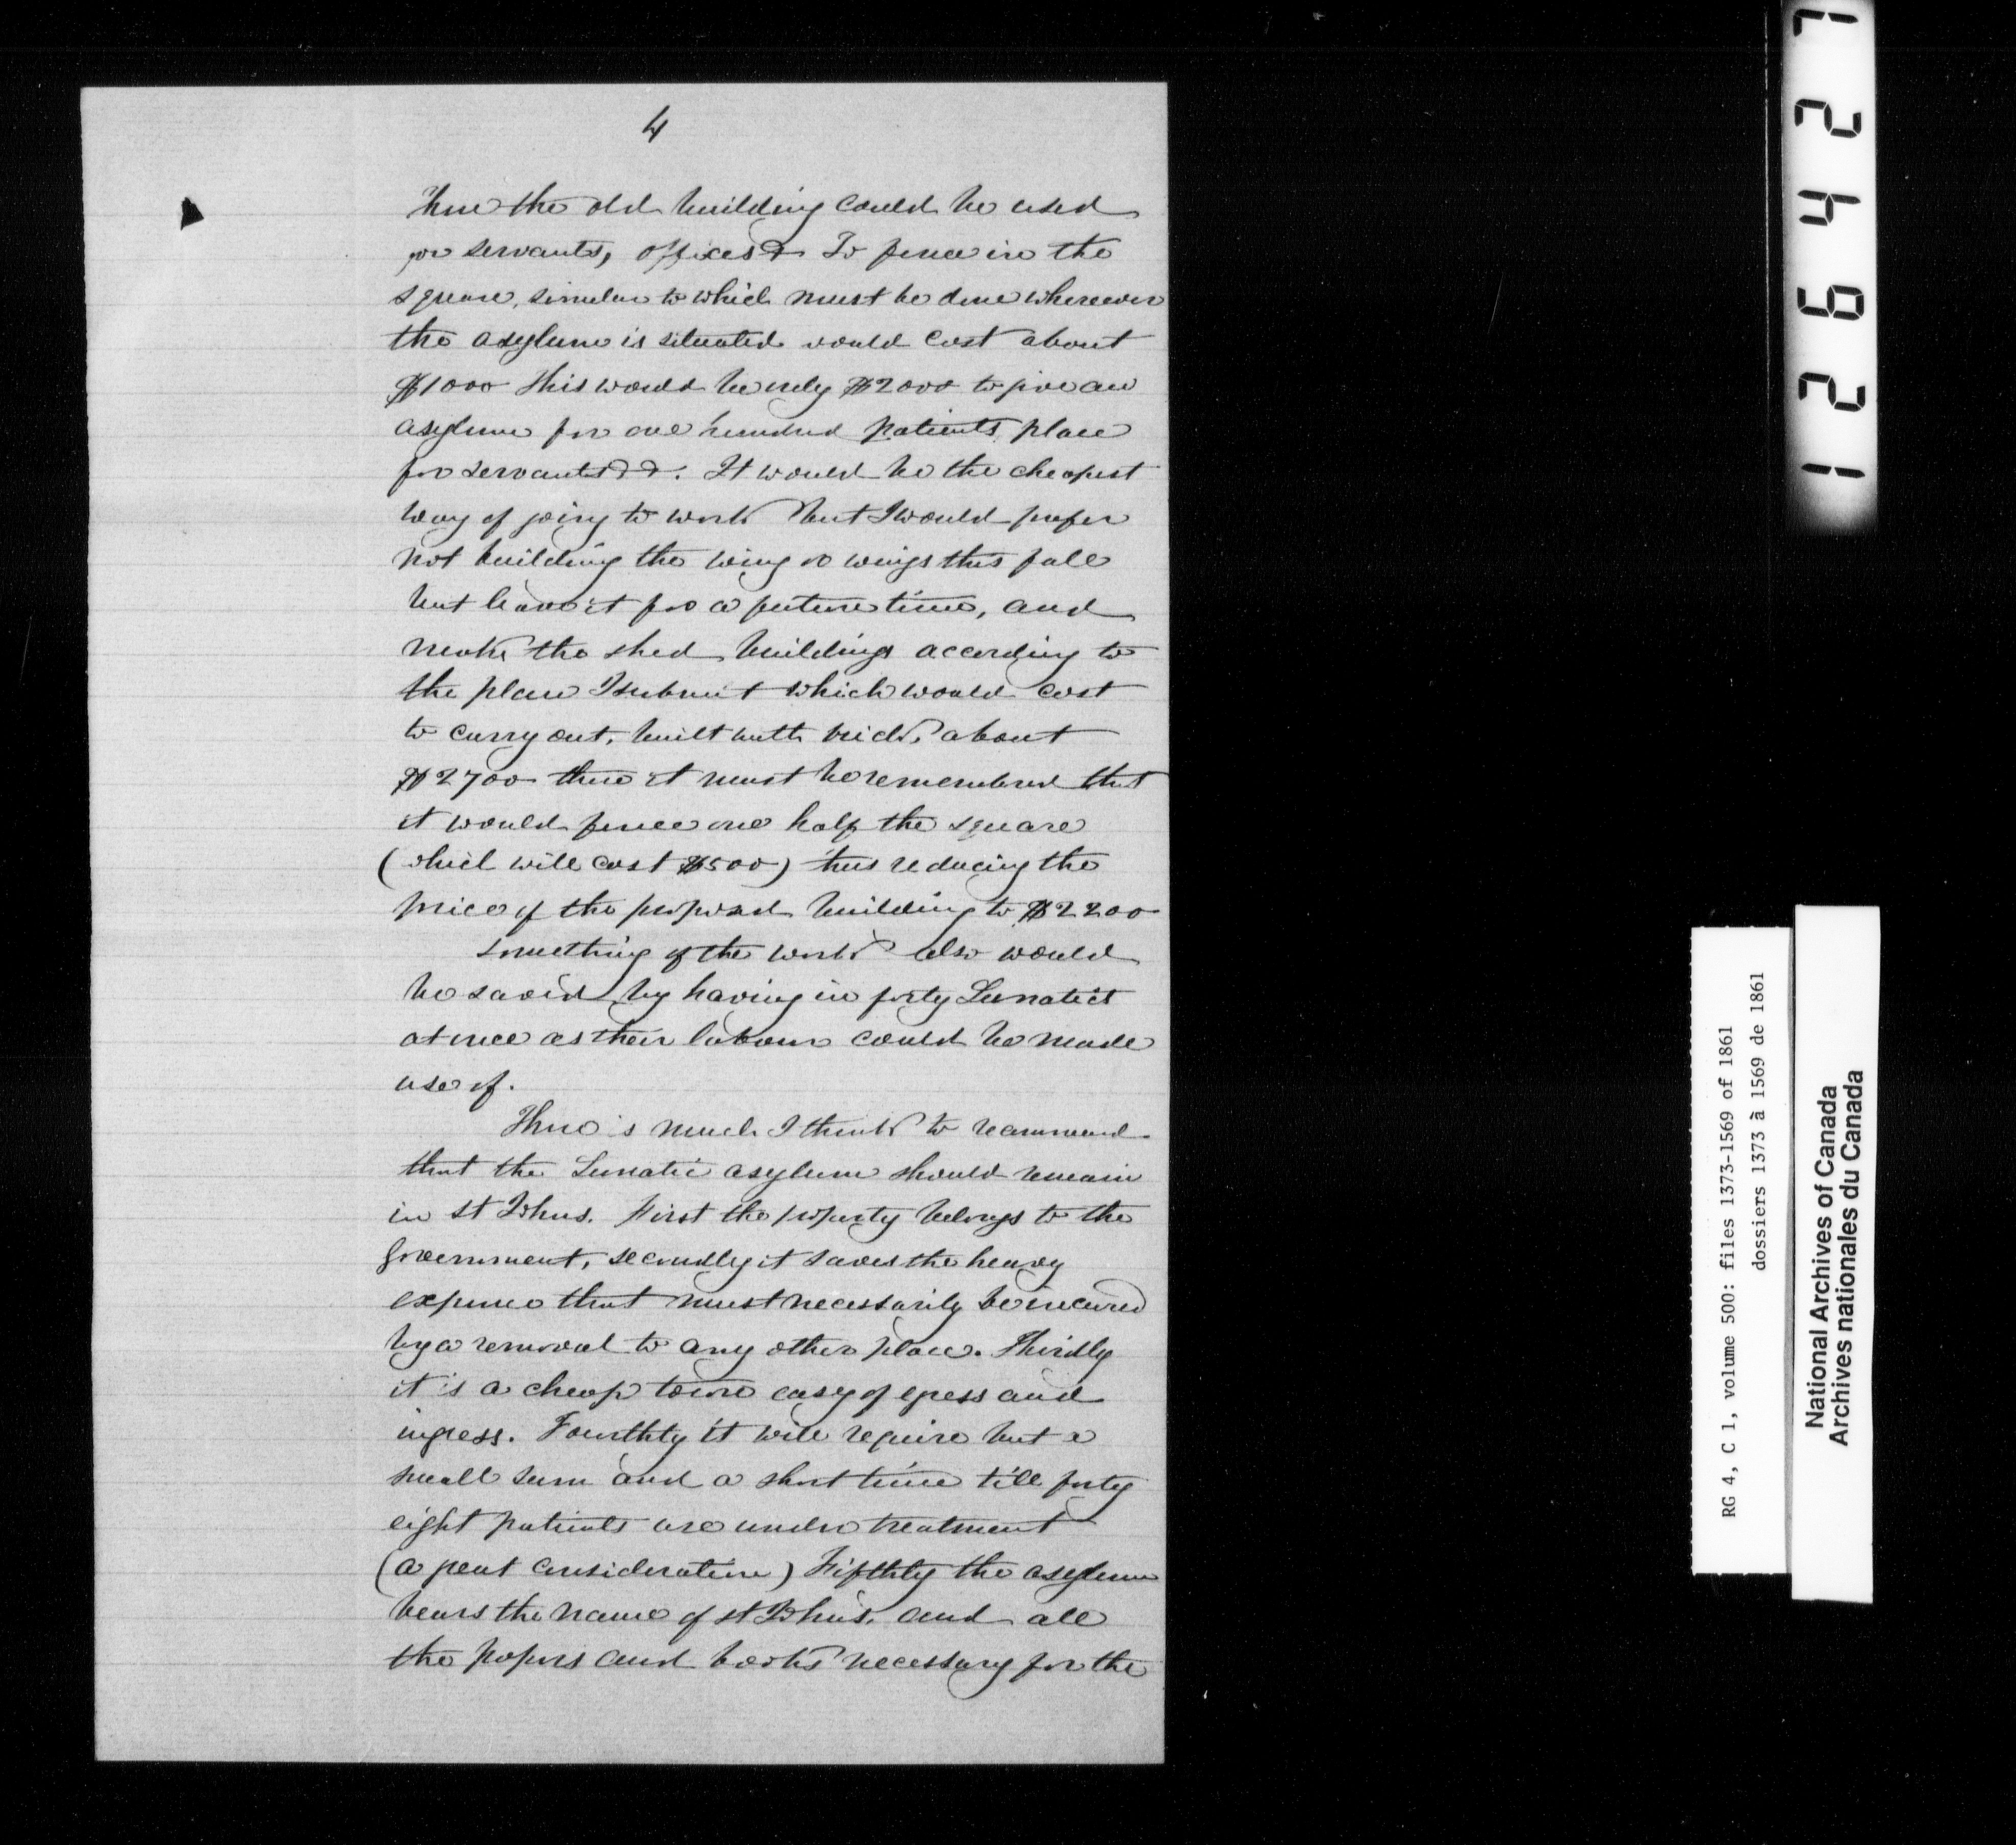 4
Then the old building could be used
for servants, offices & To fence in the
square, similar to which must be done wherever
the asylum is situated would cost about
$1000 this would be only $2000 to give an
asylum for one hundred patients, place
for servants & &. It would be the cheapest
way of going to work but I would prefer
not building the wing or wings this fall
but leave it for a future time, and
make the shed buildings according to
the plan I submit which would cost
to carry out, built with brick, about
$2700 then it must be remembered that
it would fence one half the square
(which will cost $500) thus reducing the
price of the proposed building to $2200
something of the work also would
be saved by having in forty Lunatics
at once as their labour could be made
use of.
There is much I think to recommend
that the Lunatic asylum should remain
in St Johns. First the property belongs to the
Government, secondly it saves the heavy
expense that must necessarily be incured
by a removal to any other place. Thirdly
it is a cheap town easy of egress and
ingress. Fourthly it will require but a
small sum and a short time till forty
eight patients are under treatment
(a great consideration) Fifthly the asylum
bears the name of St Johns. and all
the papers and books necessary for the
126427
RG 4, C 1, volume 500: files 1373-1569 of 1861
dossiers 1373 à 1569 de 1861
National Archives of Canada
Archives nationales du Canada